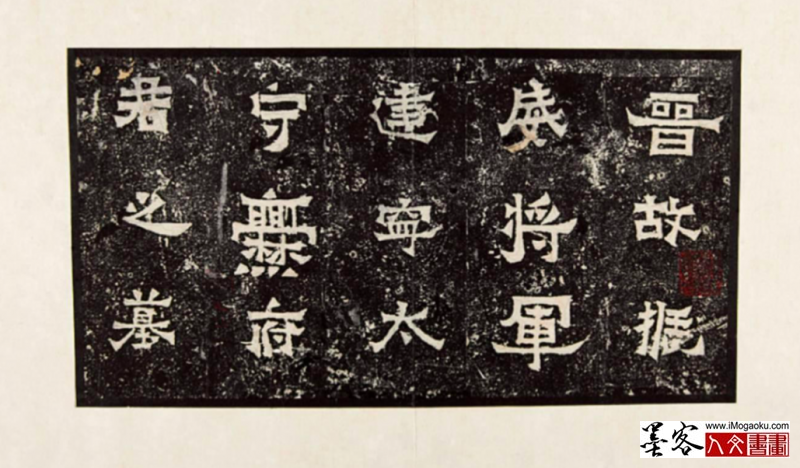 晉故振
威將軍
建寧太
守爨府
君之墓
墨客
www.iMogaoku.com
人文書畫